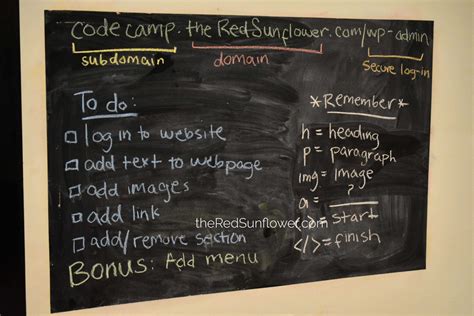 codecamp.theRedSunflower.com/wp-admin
subdomain domain Secure log-in
To do:
log in to website
add text to webpage
add images
add link
add/remove section
BONUS: Add menu
*Remember*
h = heading
p = paragraph
img = image
a = ?
< > = start
</> = finish
theRedSunflower.com